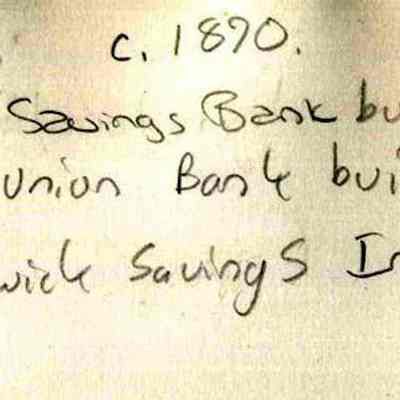 c. 1890.
Savings Bank bu
Union Bank bui
wick Savings In